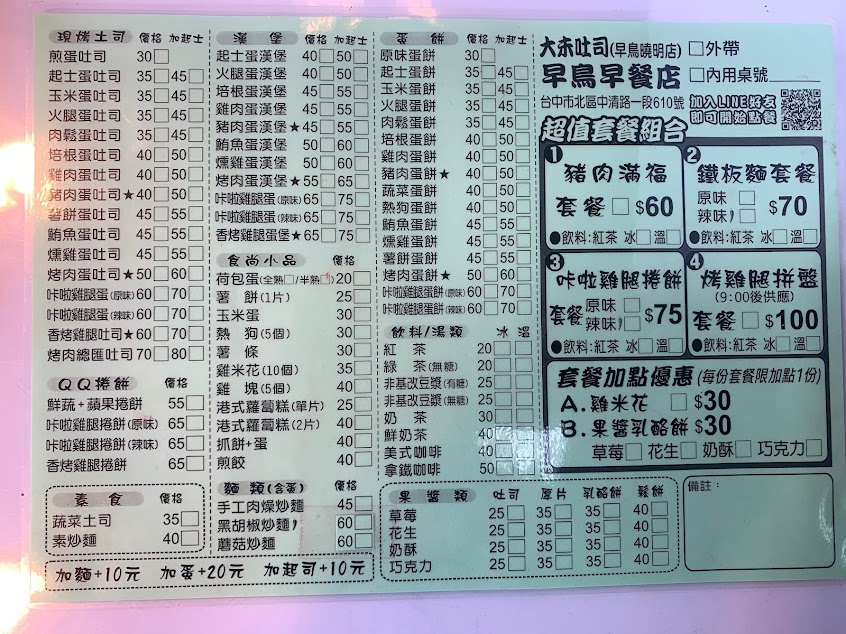 現烤土司 價格 加起士
煎蛋吐司 30
起士蛋吐司 35 45
玉米蛋吐司 35 45
火腿蛋吐司 35 45
肉鬆蛋吐司 35 45
培根蛋吐司 40 50
雞肉蛋吐司 40 50
豬肉蛋吐司★ 40 50
薯餅蛋吐司 45 55
鮪魚蛋吐司 45 55
燻雞蛋吐司 45 55
烤肉蛋吐司★ 50 60
咔啦雞腿蛋(原味) 60 70
咔啦雞腿蛋(辣味) 60 70
香烤雞腿吐司★ 60 70
烤肉總匯吐司 70 80
QQ捲餅 價格
鮮蔬+蘋果捲餅 55
咔啦雞腿捲餅(原味) 65
咔啦雞腿捲餅(辣味) 65
香烤雞腿捲餅 65
素食 價格
蔬菜土司 35
素炒麵 40
加麵+10元 加蛋+20元 加起司+10元
漢堡 價格 加起士
起士蛋漢堡 40 50
火腿蛋漢堡 40 50
培根蛋漢堡 45 55
雞肉蛋漢堡 45 55
豬肉蛋漢堡★ 45 55
鮪魚蛋漢堡 50 60
燻雞蛋漢堡 50 60
烤肉蛋漢堡★ 55 65
咔啦雞腿蛋(原味) 65 75
咔啦雞腿蛋(辣味) 65 75
香烤雞腿蛋堡★ 65 75
食尚小品 價格
荷包蛋(全熟□/半熟□) 20
薯餅(1片) 25
玉米蛋 30
熱狗(5個) 30
薯條 30
雞米花(10個) 35
雞塊(5個) 40
港式蘿蔔糕(單片) 25
港式蘿蔔糕(2片) 40
抓餅+蛋 40
煎餃 40
麵類(含蛋) 價格
手工肉燥炒麵 45
黑胡椒炒麵 60
蘑菇炒麵 60
蛋餅 價格 加起士
原味蛋餅 30
起士蛋餅 35 45
玉米蛋餅 35 45
火腿蛋餅 35 45
肉鬆蛋餅 35 45
培根蛋餅 40 50
雞肉蛋餅 40 50
豬肉蛋餅★ 40 50
蔬菜蛋餅 40 50
熱狗蛋餅 40 50
鮪魚蛋餅 45 55
燻雞蛋餅 45 55
薯餅蛋餅 45 55
烤肉蛋餅★ 50 60
咔啦雞腿蛋餅(原味) 60 70
咔啦雞腿蛋餅(辣味) 60 70
飲料/湯類 冰 溫
紅茶 20
綠茶(無糖) 20
非基改豆漿(有糖) 25
非基改豆漿(無糖) 25
奶茶 30
鮮奶茶 40
美式咖啡 40
拿鐵咖啡 50
果醬類 吐司 厚片 乳酪餅 鬆餅
草莓 25 35 35 40
花生 25 35 35 40
奶酥 25 35 35 40
巧克力 25 35 35 40
大赤吐司(早鳥曉明店) □外帶
早鳥早餐店 □內用桌號
台中市北區中清路一段610號
加入LINE好友
即可開始點餐
超值套餐組合
1 豬肉滿福
套餐 □ $60
●飲料:紅茶 冰□ 溫□
2 鐵板麵套餐
原味 □
辣味 □ $70
●飲料:紅茶 冰□ 溫□
3 咔啦雞腿捲餅
套餐 原味 □ 辣味 □ $75
●飲料:紅茶 冰□ 溫□
4 烤雞腿拼盤
(9:00後供應)
套餐 □ $100
●飲料:紅茶 冰□ 溫□
套餐加點優惠 (每份套餐限加點1份)
A.雞米花 □ $30
B.果醬乳酪餅 $30
草莓□ 花生□ 奶酥□ 巧克力□
備註: